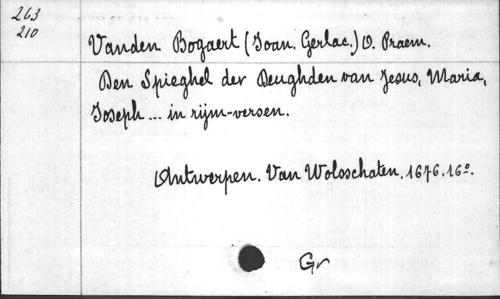 263
210
Vanden Bogaert (Joan. Gerlac.) O. Praem.
Den Spieghel der Deughden van Jesus, Maria,
Joseph ... in rijm-versen.
Antwerpen. Van Wolsschaten. 1676. 16º.
Gr